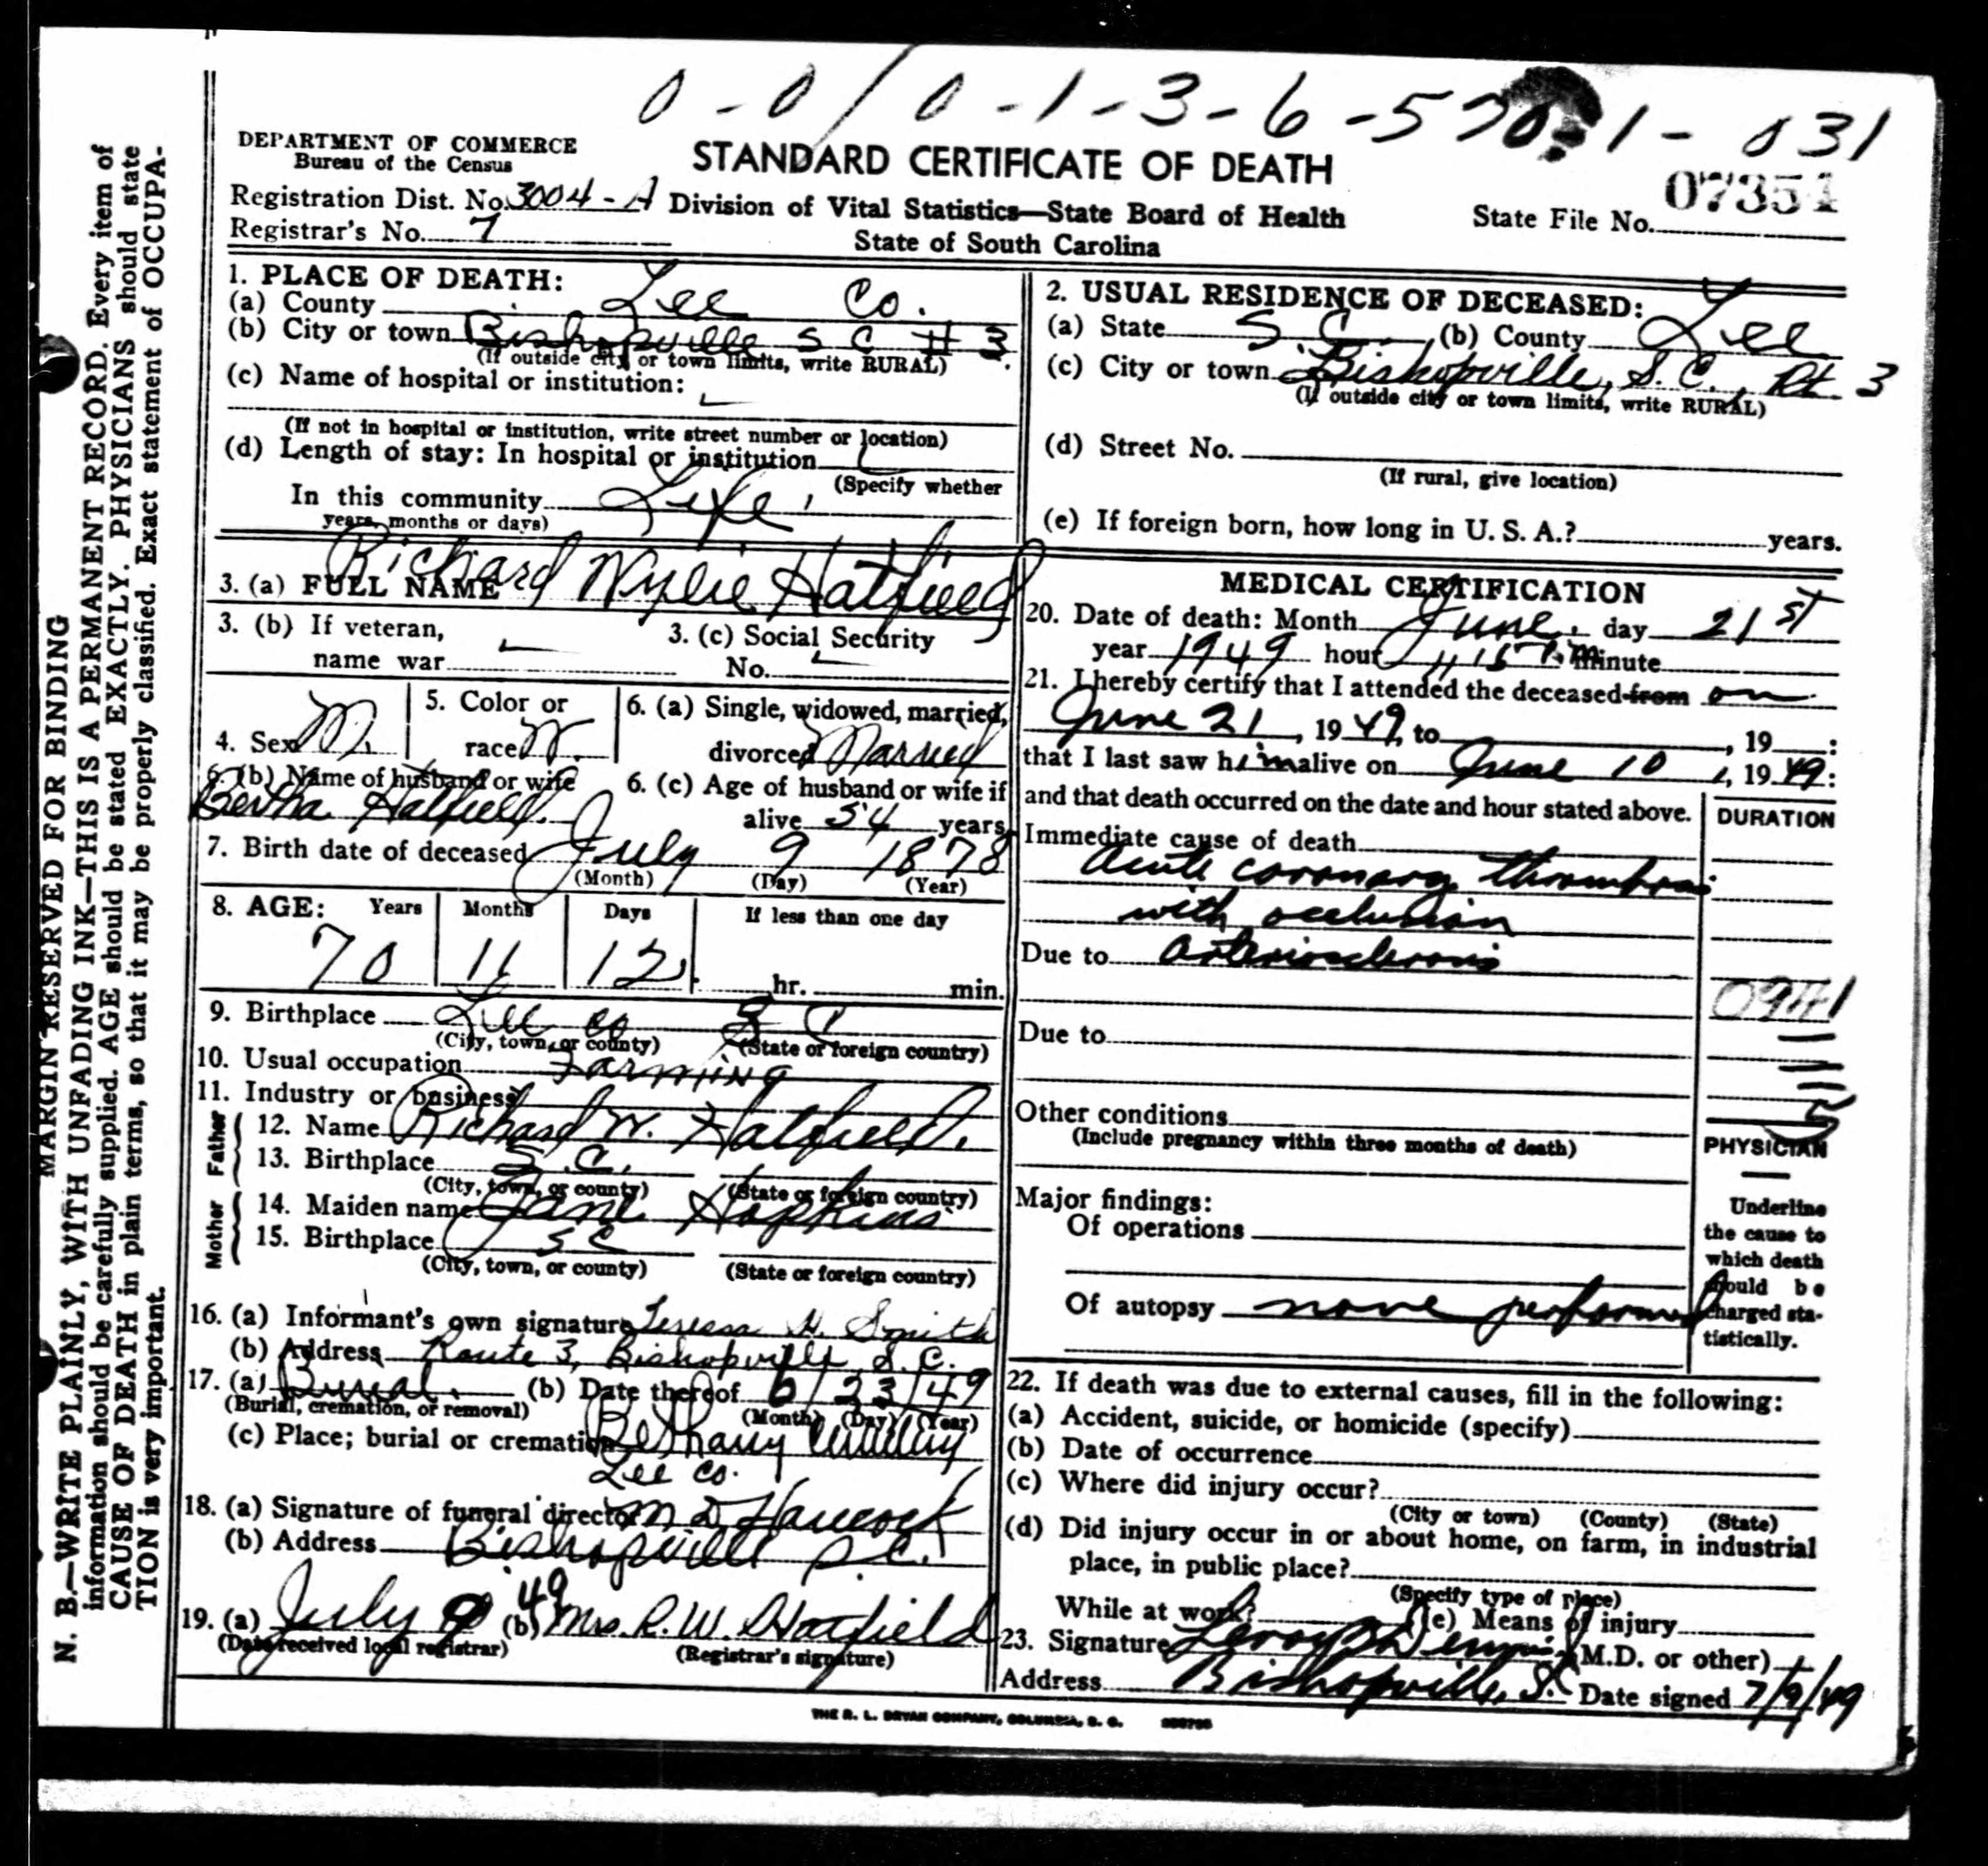 0-0/0-1-3-6-5 70 1-031
DEPARTMENT OF COMMERCE
Bureau of the Census
STANDARD CERTIFICATE OF DEATH
Registration Dist. No. 3004-A
Division of Vital Statistics—State Board of Health
State File No. 07354
Registrar's No. 7
State of South Carolina
1. PLACE OF DEATH:
(a) County Lee Co.
(b) City or town Bishopville S C # 3
(If outside city or town limits, write RURAL)
(c) Name of hospital or institution:
(If not in hospital or institution, write street number or location)
(d) Length of stay: In hospital or institution
(Specify whether
In this community Life
years, months or days)
2. USUAL RESIDENCE OF DECEASED:
(a) State S. C. (b) County Lee
(c) City or town Bishopville, S.C., Rt. 3
(If outside city or town limits, write RURAL)
(d) Street No.
(If rural, give location)
(e) If foreign born, how long in U. S. A.? years.
3. (a) FULL NAME Richard Wylie Hatfield
3. (b) If veteran,
name war
3. (c) Social Security
No.
4. Sex M.
5. Color or
race W.
6. (a) Single, widowed, married,
divorced Married
6. (b) Name of husband or wife
Bertha Hatfield.
6. (c) Age of husband or wife if
alive 54 years
7. Birth date of deceased July 9 1878
(Month) (Day) (Year)
8. AGE: Years Months Days If less than one day
70 11 12 hr. min.
9. Birthplace Lee Co S C
(City, town, or county) (State or foreign country)
10. Usual occupation Farming
11. Industry or business
Father
12. Name Richard W. Hatfield.
13. Birthplace S.C.
(City, town, or county) (State or foreign country)
Mother
14. Maiden name Jane Hopkins
15. Birthplace S C
(City, town, or county) (State or foreign country)
16. (a) Informant's own signature Teresa H. Smith
(b) Address Route 3, Bishopville, S.C.
17. (a) Burial. (b) Date thereof 6/23/49
(Burial, cremation, or removal) (Month) (Day) (Year)
(c) Place; burial or cremation Bethany Cemetery
Lee Co.
18. (a) Signature of funeral director M D Hancock
(b) Address Bishopville S.C.
19. (a) July 9 49 (b) Mrs. R. W. Hatfield
(Date received local registrar) (Registrar's signature)
MEDICAL CERTIFICATION
20. Date of death: Month June day 21st
year 1949 hour minute
21. I hereby certify that I attended the deceased from on
June 21, 1949, to , 19 :
that I last saw him alive on June 10, 1949:
and that death occurred on the date and hour stated above.
DURATION
Immediate cause of death
acute coronary thrombosis
with occlusion
Due to arteriosclerosis
Due to
Other conditions
(Include pregnancy within three months of death)
Major findings:
Of operations
Of autopsy none performed
PHYSICIAN
Underline
the cause to
which death
should be
charged sta-
tistically.
22. If death was due to external causes, fill in the following:
(a) Accident, suicide, or homicide (specify)
(b) Date of occurrence
(c) Where did injury occur?
(City or town) (County) (State)
(d) Did injury occur in or about home, on farm, in industrial
place, in public place?
(Specify type of place)
While at work? (e) Means of injury
23. Signature Leroy Dennis M.D. or other)
Address Bishopville, S.C. Date signed 7/9/49
THE R. L. BRYAN COMPANY, COLUMBIA, S. C.
MARGIN RESERVED FOR BINDING
N. B.—WRITE PLAINLY, WITH UNFADING INK—THIS IS A PERMANENT RECORD. Every item of
information should be carefully supplied. AGE should be stated EXACTLY. PHYSICIANS should state
CAUSE OF DEATH in plain terms, so that it may be properly classified. Exact statement of OCCUPA-
TION is very important.